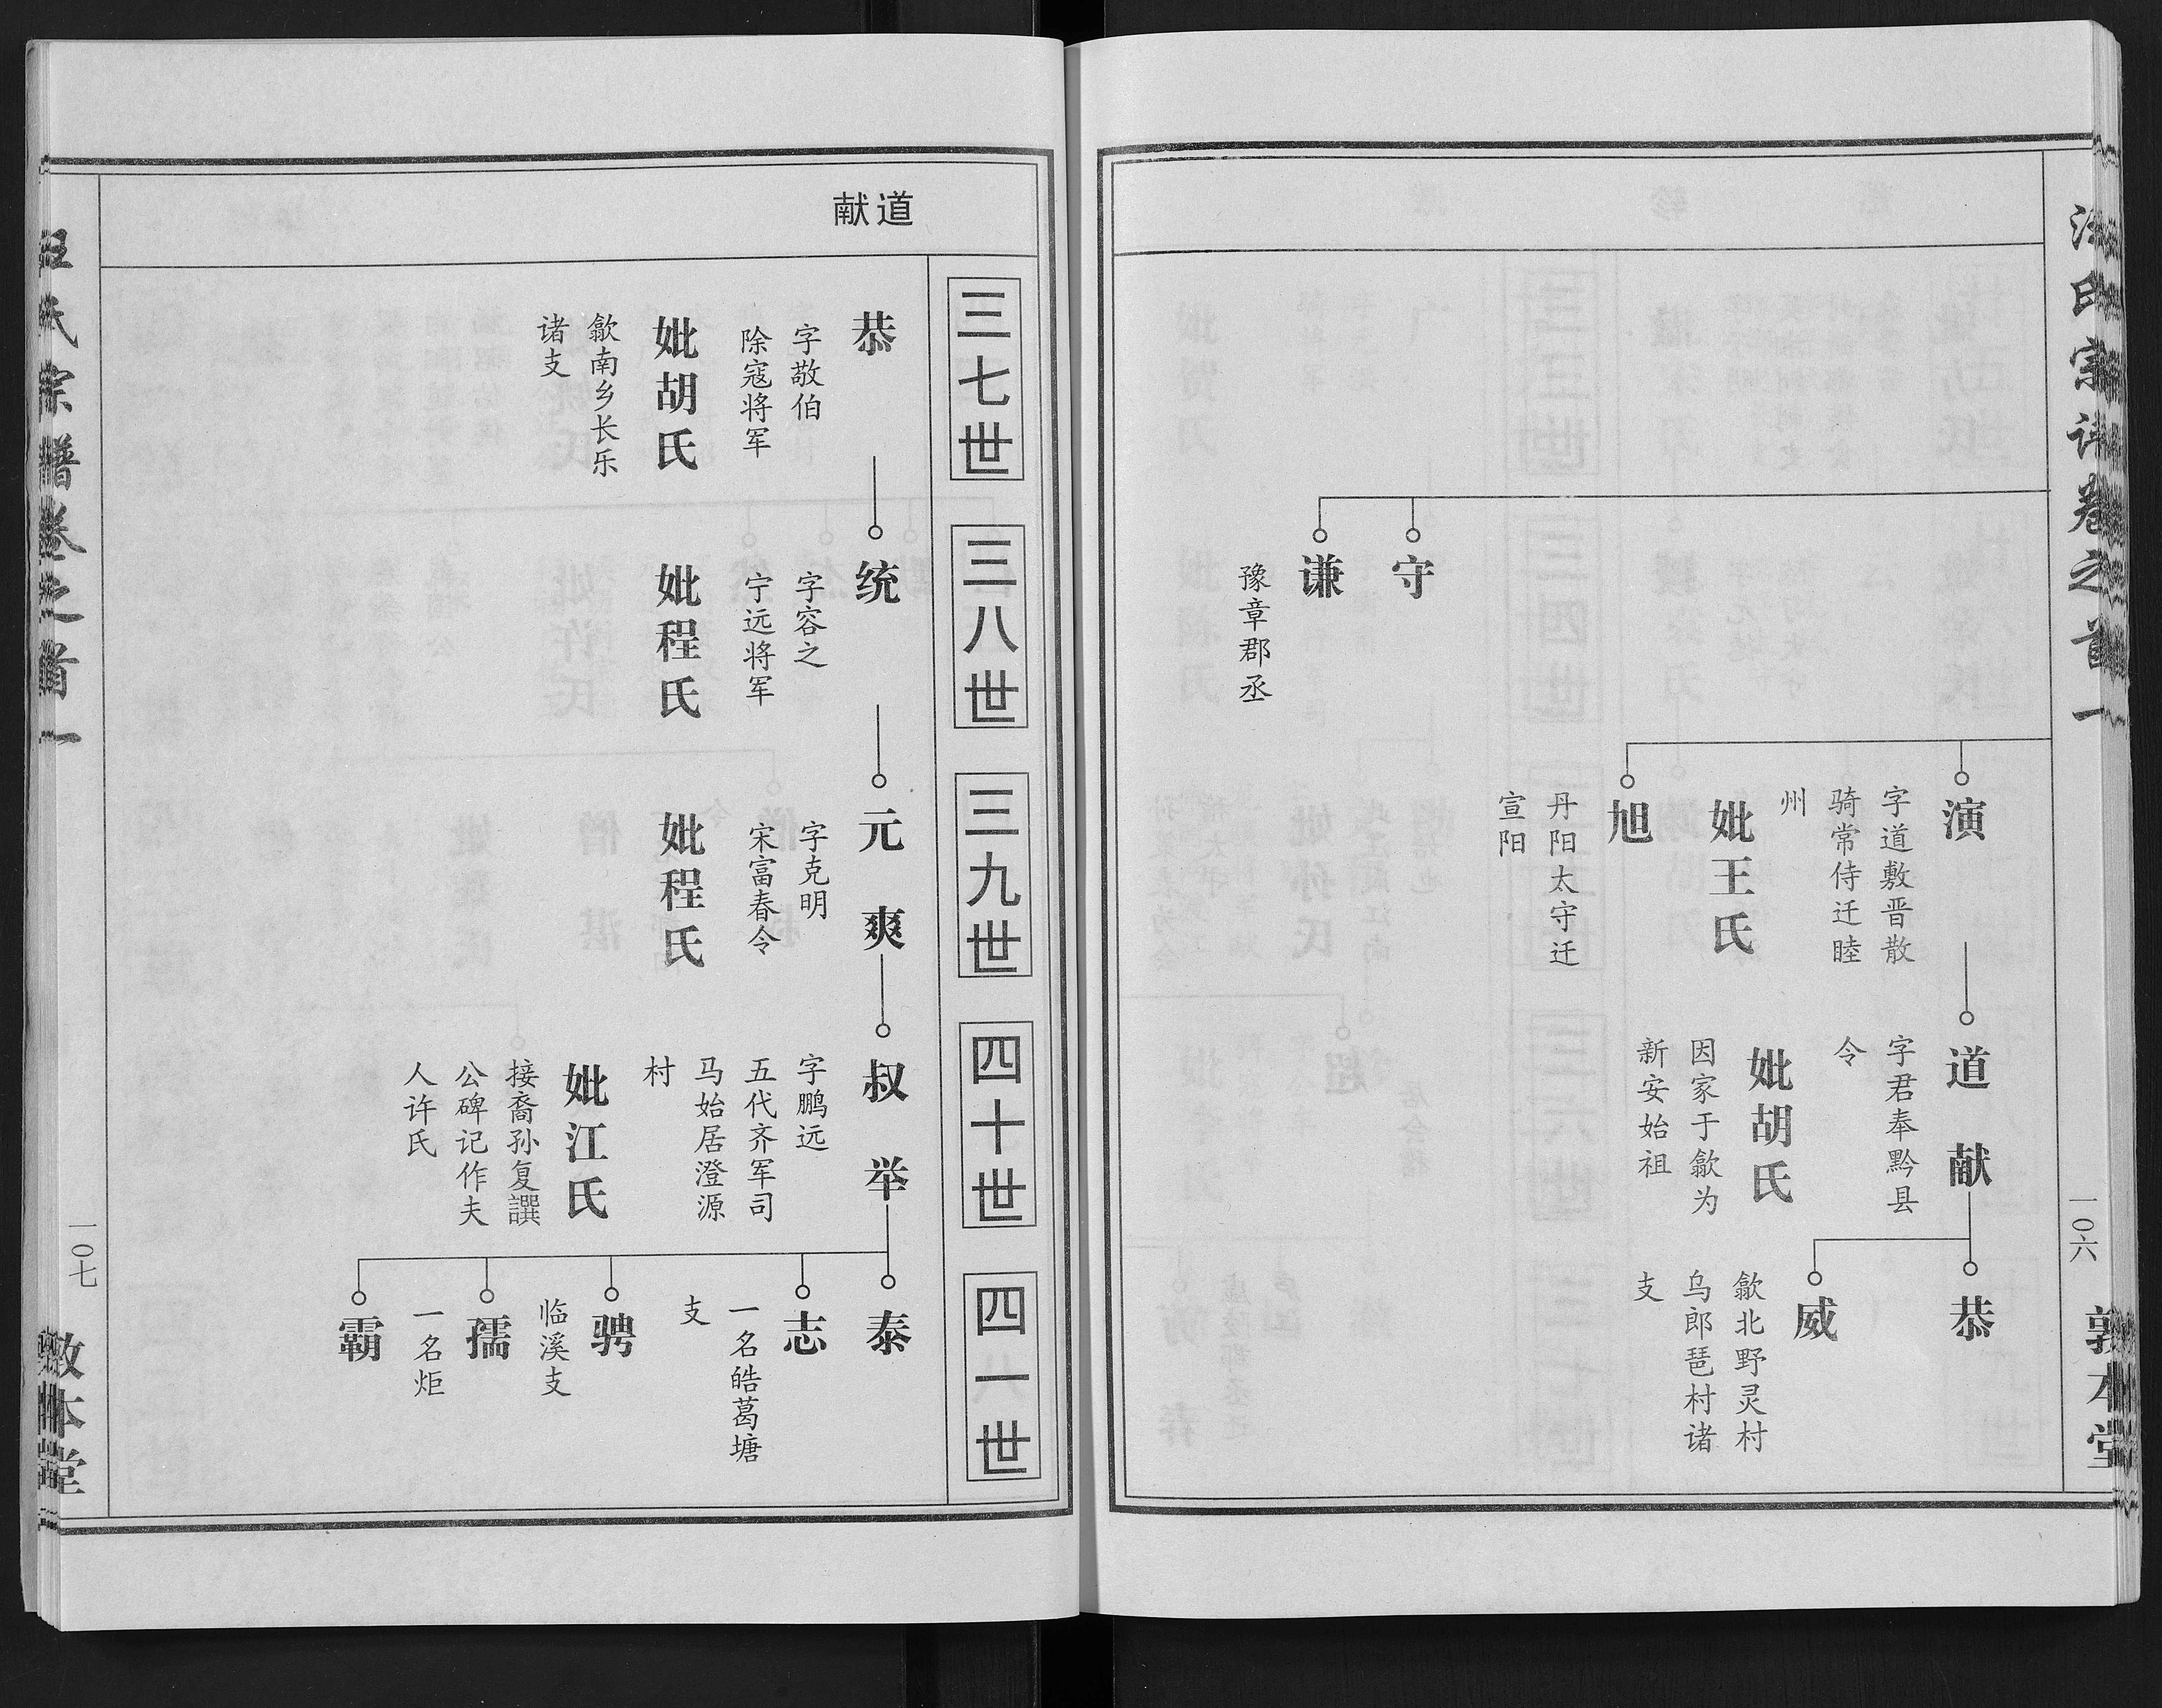 汪氏宗谱卷之首一
一〇六
敦本堂
守
谦
豫章郡丞
演
字道敷晋散
骑常侍迁睦
州
妣王氏
旭
丹阳太守迁
宣阳
道献
字君奉黔县
令
妣胡氏
因家于歙为
新安始祖
恭
威
歙北野灵村
乌郎琶村诸
支
道献
三七世
三八世
三九世
四十世
四一世
恭
字敬伯
除寇将军
妣胡氏
歙南乡长乐
诸支
统
字容之
宁远将军
妣程氏
元爽
字克明
宋富春令
妣程氏
叔举
字鹏远
五代齐军司
马始居澄源
村
妣江氏
接裔孙复譔
公碑记作夫
人许氏
泰
志
一名皓葛塘
支
骋
临溪支
孺
一名炬
霸
汪氏宗谱卷之首一
一〇七
敦本堂